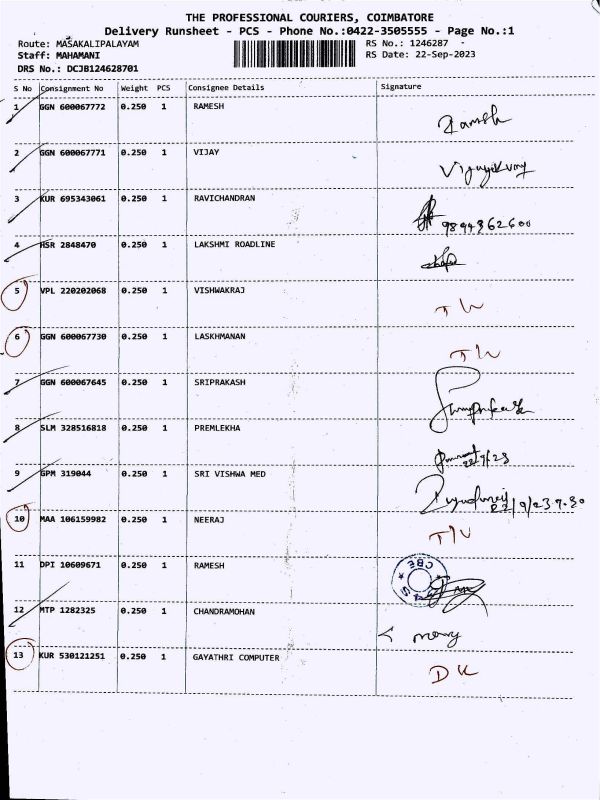 THE PROFESSIONAL COURIERS, COIMBATORE
Delivery Runsheet - PCS - Phone No.:0422-3505555 - Page No.:1
Route: MASAKALIPALAYAM RS No.: 1246287
Staff: MAHAMANI RS Date: 22-Sep-2023
DRS No.: DCJB124628701
S No Consignment No Weight PCS Consignee Details Signature
1 GGN 600067772 0.250 1 RAMESH Ramesh
2 GGN 600067771 0.250 1 VIJAY
3 KUR 695343061 0.250 1 RAVICHANDRAN 9894362600
4 HSR 2848470 0.250 1 LAKSHMI ROADLINE
5 VPL 220202068 0.250 1 VISHWAKRAJ
6 GGN 600067730 0.250 1 LASKHMANAN
7 GGN 600067645 0.250 1 SRIPRAKASH
8 SLM 328516818 0.250 1 PREMLEKHA 22/9/23
9 GPM 319044 0.250 1 SRI VISHWA MED 22/9/23 9.30
10 MAA 106159982 0.250 1 NEERAJ
11 DPI 10609671 0.250 1 RAMESH CBE
12 MTP 1282325 0.250 1 CHANDRAMOHAN
13 KUR 530121251 0.250 1 GAYATHRI COMPUTER DK